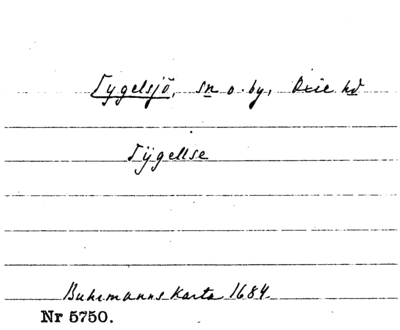 Tygelsjö, sn o. by, Oxie hd
Tÿgellse
Buhrmanns karta 1684.
Nr 5750.